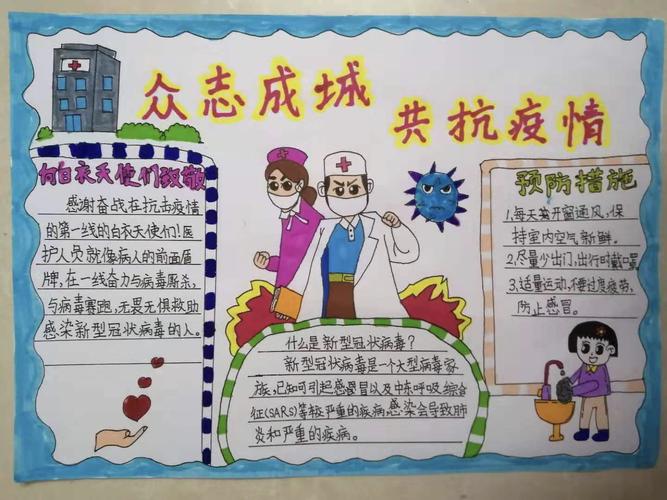 众志成城
共抗疫情
向白衣天使们致敬
感谢奋战在抗击疫情
的第一线的白衣天使们!医
护人员就像病人的前面盾
牌,在一线奋力与病毒厮杀,
与病毒赛跑,无畏无惧救助
感染新型冠状病毒的人。
什么是新型冠状病毒?
新型冠状病毒是一个大型病毒家
族,已知可引起感冒以及中东呼吸综合
征(SARS)等较严重的疾病,感染会导致肺
炎和严重的疾病。
预防措施
1.每天要开窗通风,保
持室内空气新鲜。
2.尽量少出门,出行时戴口罩
3.适量运动,不要过度疲劳,
防止感冒。